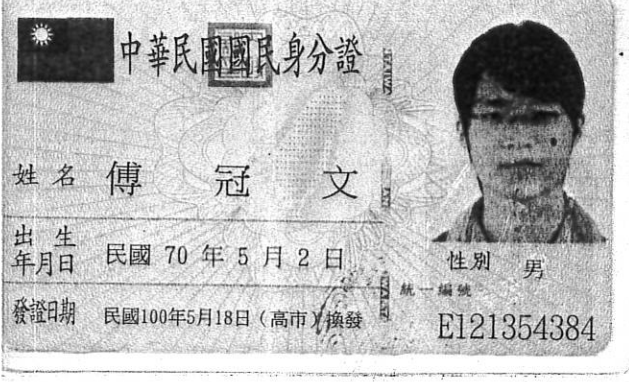 中華民國國民身分證
姓名 傅冠文
出生年月日 民國 70 年 5 月 2 日
性別 男
發證日期 民國100年5月18日（高市）換發
統一編號
E121354384